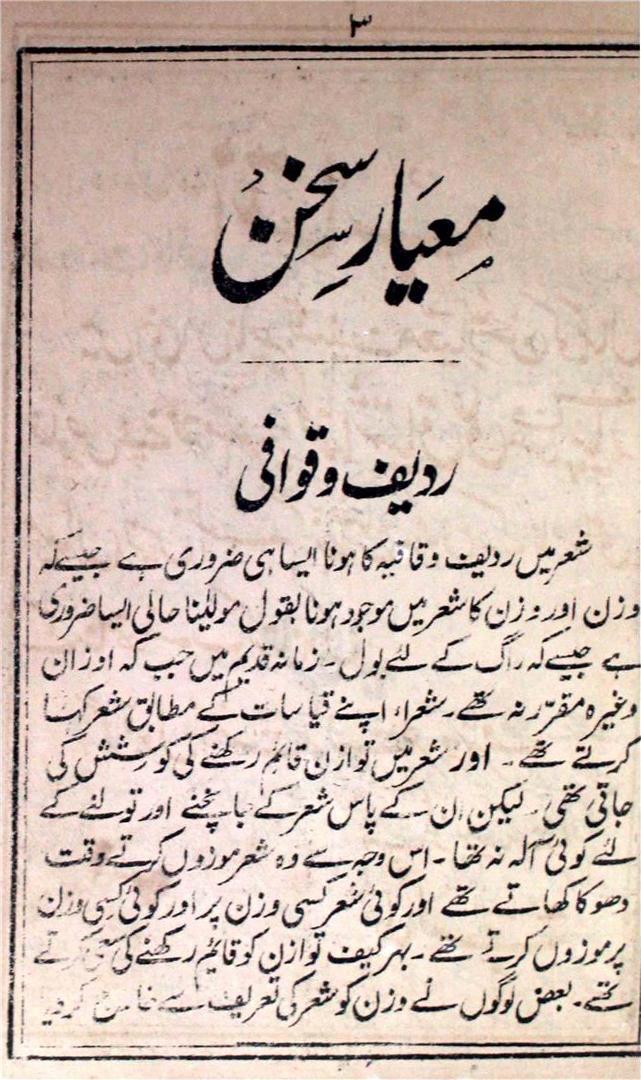 ۳
معیار سخن
ردیف و قوافی
شعر میں ردیف و قافیہ کا ہونا ایسا ہی ضروری ہے جیسے کہ
وزن اور وزن کا شعر میں موجود ہونا بقول مولٰینا حالی ایسا ضروری
ہے جیسے کہ راگ کے لئے بول ۔ زمانہ قدیم میں جب کہ اوزان
وغیرہ مقرّر نہ تھے ۔ شعراء اپنے قیاسات کے مطابق شعر کہا
کرتے تھے ۔ اور شعر میں توازن قائم رکھنے کی کوشش کی
جاتی تھی ۔ لیکن ان کے پاس شعر کے جانچنے اور تولنے کے
لئے کوئی آلہ نہ تھا ۔ اس وجہ سے وہ شعر موزوں کرتے وقت
دھوکا کھاتے تھے اور کوئی شعر کسی وزن پر اور کوئی کسی وزن
پر موزوں کرتے تھے ۔ بہر کیف توازن کو قائم رکھنے کی سعی کرتے
تھے ۔ بعض لوگوں نے وزن کو شعر کی تعریف سے خارج کردیا